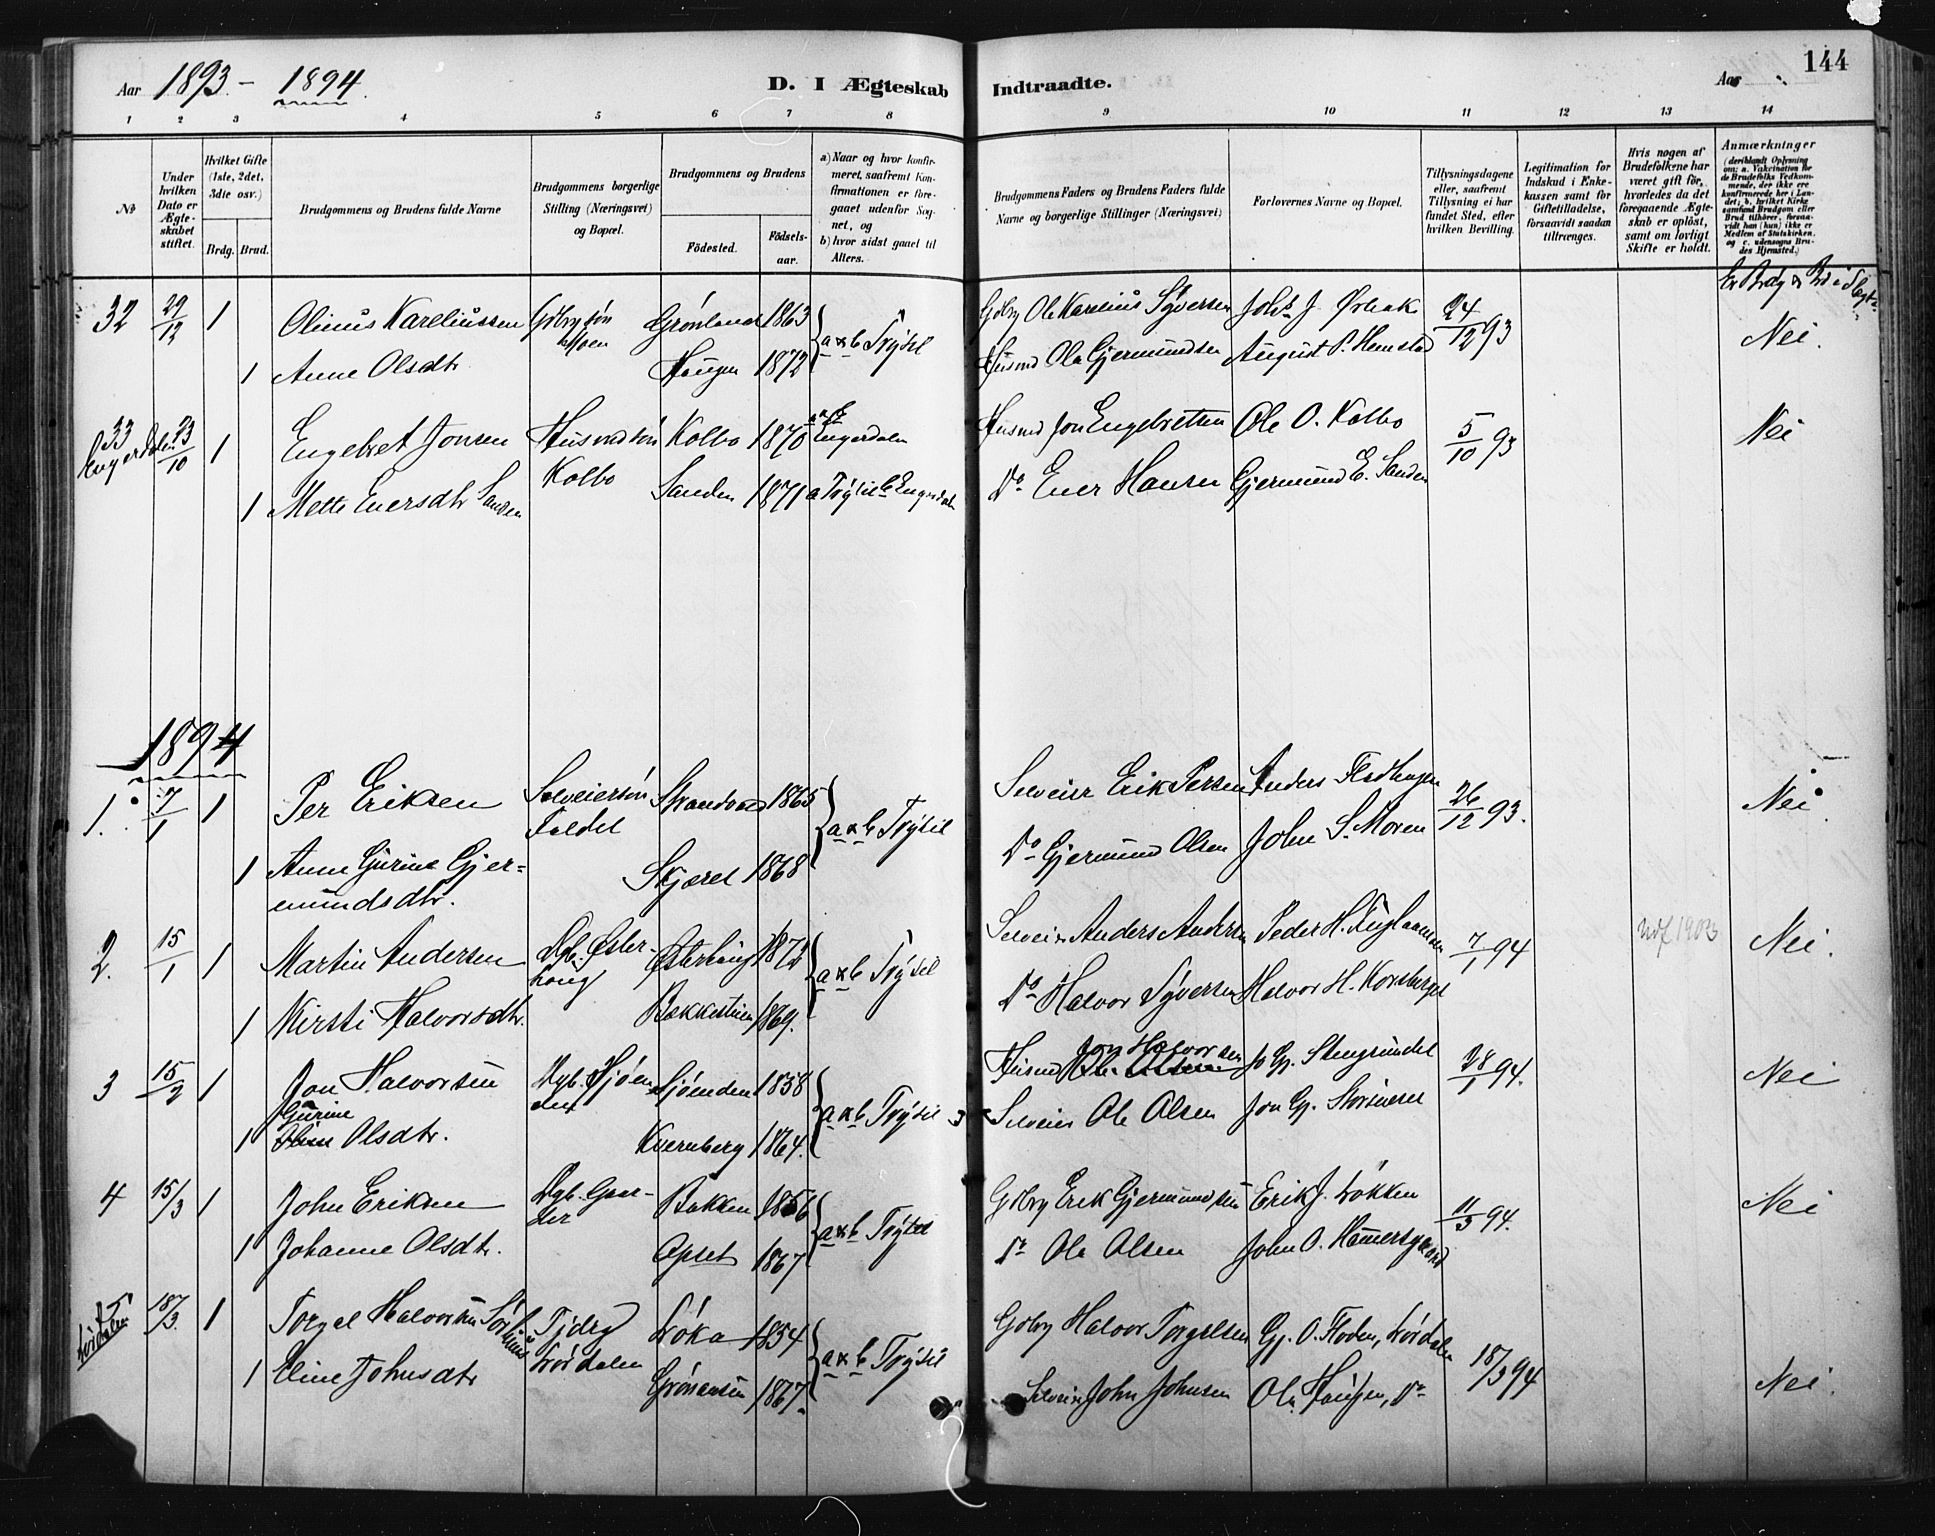 Aar 1893 - 1894.
D. I Ægteskab Indtraadte.
Aar
144
1 2 3 4 5 6 7 8 9 10 11 12 13 14
No
Under hvilken Dato er Ægteskabet stiftet.
Hvilket Gifte (1ste, 2det, 3die osv.)
Brdg. Brud.
Brudgommens og Brudens fulde Navne
Brudgommens borgerlige Stilling (Næringsvei) og Bopæl.
Brudgommens og Brudens
Fødested.
Fødselsaar.
a) Naar og hvor konfirmeret, saafremt Konfirmationen er foregaaet udenfor Sognet, og
b) hvor sidst gaaet til Alters.
Brudgommens Faders og Brudens Faders fulde Navne og borgerlige Stillinger (Næringsvei)
Forlovernes Navne og Bopæl.
Tillysningsdagene eller, saafremt Tillysning ei har fundet Sted, efter hvilken Bevilling.
Legitimation for Indskud i Enkekassen samt for Giftetilladelse, forsaavidt saadan tiltrænges.
Hvis nogen af Brudefolkene har været gift før, hvorledes da det foregaaende Ægteskab er opløst, samt om lovligt Skifte er holdt.
Anmærkninger
(deriblandt Oplysning om: a. Vakcination for de Brudefolks Vedkommende, der ikke ere konfirmerede her i Landet; b. hvilket Kirkesamfund Brudgom eller Brud tilhører, forsaavidt han (hun) ikke er Medlem af Statskirken, og c. udensogns Brudes Hjemsted.)
Er Brdg & Br i Slegt
32 29/12 1 Olinus Kareliussen Gdbr.søn Moen Grønland 1863 a & b Trysil Gdbr Ole Karelius Syversen Johs J. Ørbak 24/12 93 Nei.
1 Anne Olsdtr Haugen 1872 Husmd Ole Gjermundsen August P. Hemstad
33 Engerdalen 23/10 1 Engebret Jonsen Husmd søn Kolbo Kolbo 1870 a & b Engerdalen Husmd Jon Engebretsen Ole O. Kolbo 5/10 93 Nei
1 Mette Enersdtr Sanden Sanden 1871 a Trysil b Engerdalen Do Ener Hansen Gjermund E. Sanden
1894
1. 7/1 1 Per Eriksen Selveiersøn Faldet Strandvold 1865 a & b Trysil Selveier Erik Persen Anders Flodhagen 26/12 93. Nei.
1 Anne Gurine Gjermundsdtr. Skjæret 1868 Do Gjermund Olsen John S. Moren
2. 15/1 1 Martin Andersen Dgb. Østerhaug Østerhaug 1872 a & b Trysil Selveier Anders Andersen Peder H. Fuglaasen 7/1 94 Udf 1903 Nei.
1 Kirsti Halvorsdtr. Bakkestuen 1869. Do Halvor Syversen Halvor H. Korsberget
3 15/2 1 Jon Halvorsen Dgb. Sjøenden Sjøenden 1858 a & b Trysil Husmd Jon Halvorsen Jo Gj. Stengrundet 28/1 94. Nei
1 Gurine Olsdtr. Kvernberg 1864. Selveier Ole Olsen Jon Gj. Storsveen
4 15/3 1 John Eriksen Dgb. Galder Bakken 1856 a & b Trysil Gdbr Erik Gjermundsen Erik J. Løkken 11/3 94. Nei
1 Johanne Olsdtr. Opset 1867 Do Ole Olsen John O. Hammersgaard
5 Lørdalen 18/3. 1 Torgel Halvorsen Tjdrg Lørdalen Løka 1854 a & b Trysil Gdbr Halvor Torgelsen Gj. O. Floden, Lørdalen 18/3 94 Nei.
1 Eline Johnsdtr Grønaasen 1867. Selveier John Johnsen Ole Haugen, Do